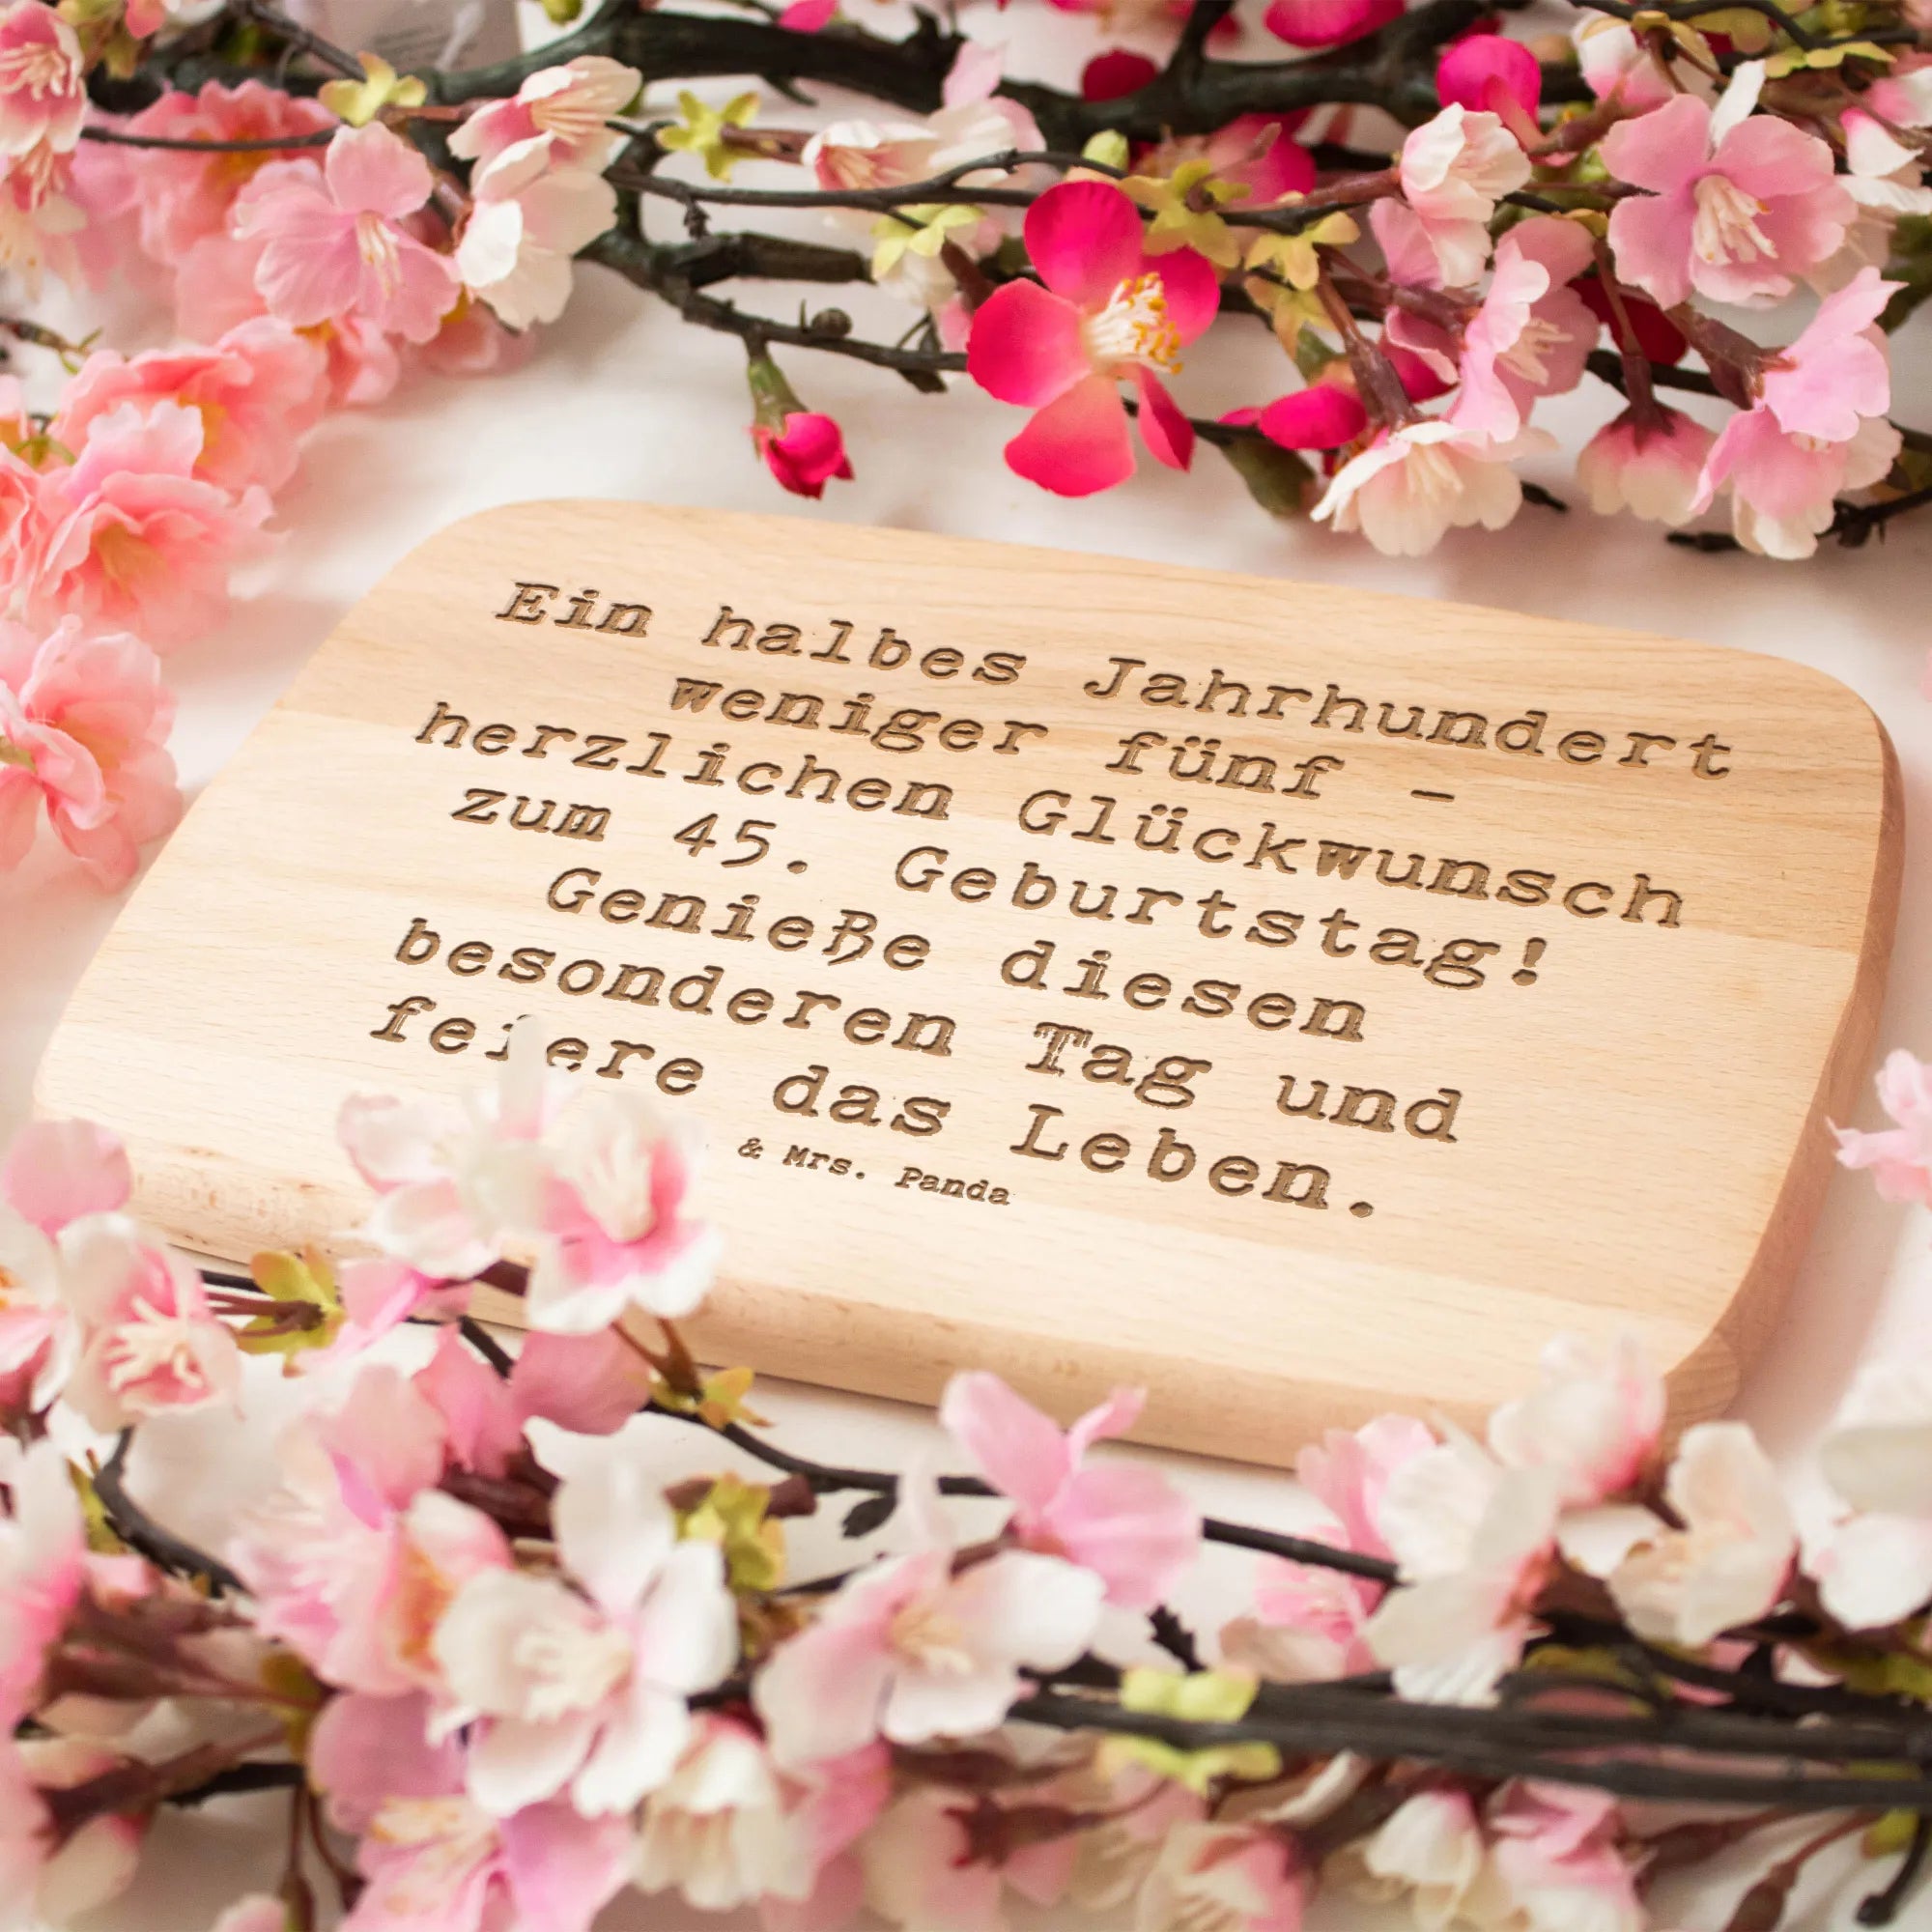 Ein halbes Jahrhundert
weniger fünf -
herzlichen Glückwunsch
zum 45. Geburtstag!
Genieße diesen
besonderen Tag und
feiere das Leben.
& Mrs. Panda